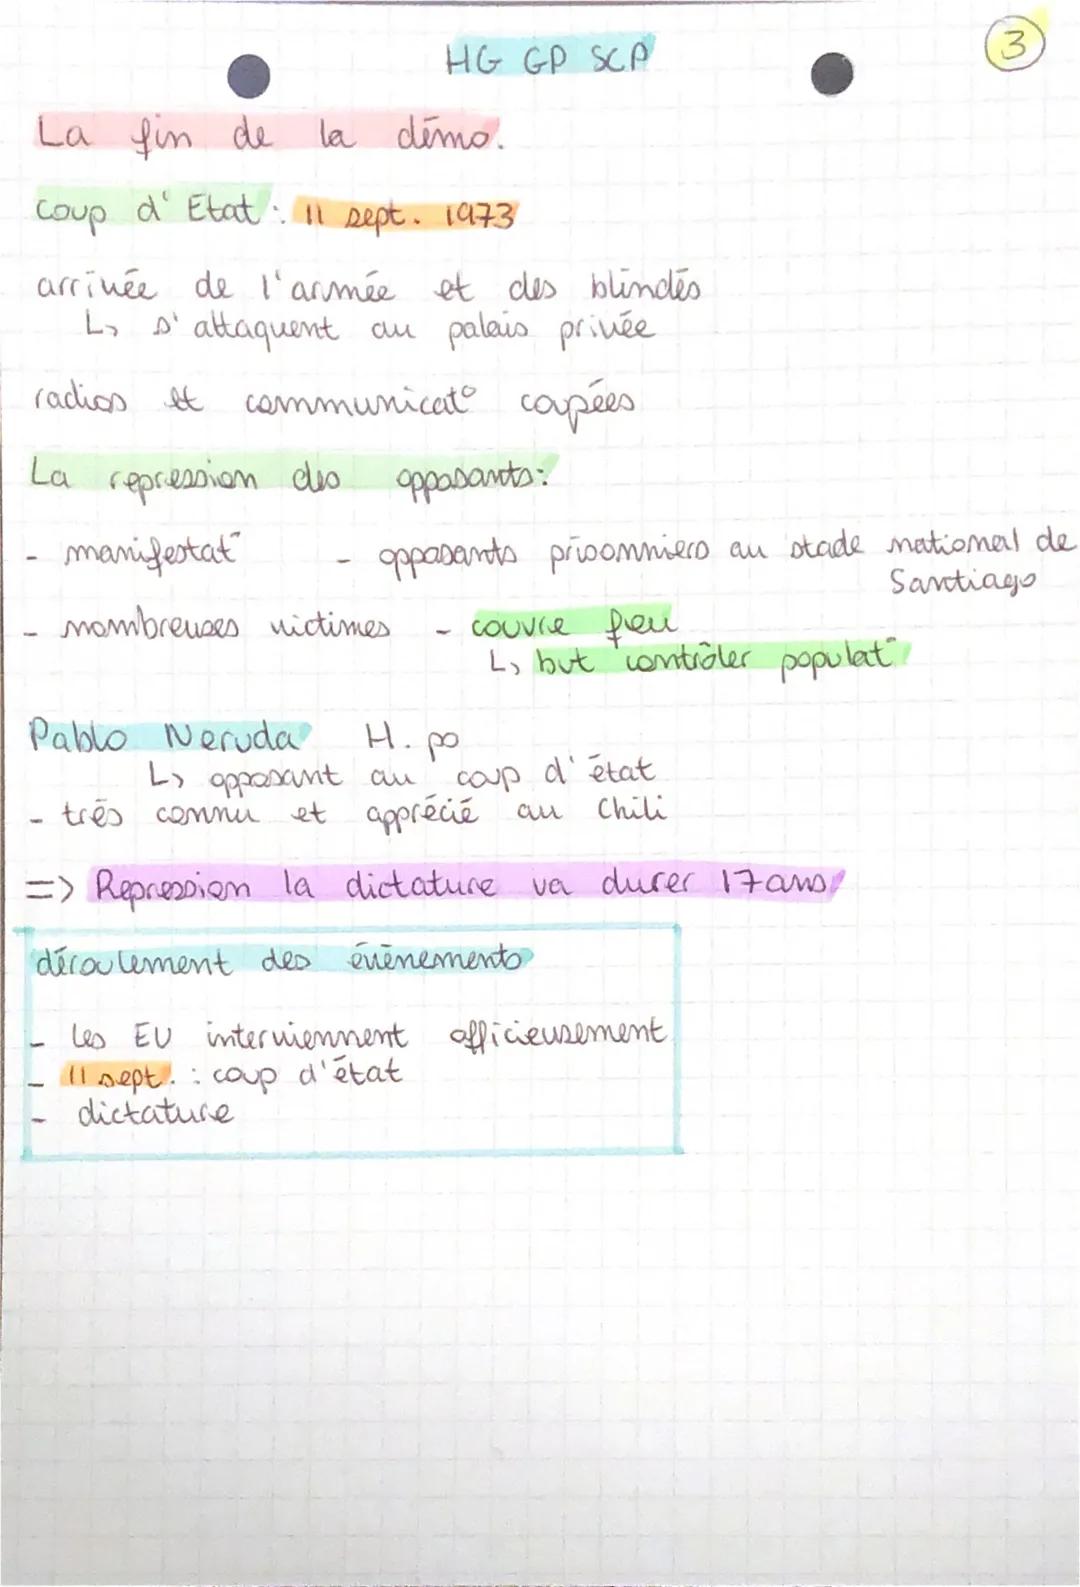 HG GP SCP
3
La fin de la démo.
coup d'Etat : 11 sept. 1973
arrivée de l'armée et des blindés
↳ s'attaquent au palais privée
radios et communicat° coupées
La repression des opposants :
- manifestat° - opposants prisonniers au stade national de
Santiago
- nombreuses victimes - couvre feu
↳ but contrôler populat°
Pablo Neruda H. po
↳ opposant au coup d'état
- très connu et apprécié au Chili
=> Repression la dictature va durer 17 ans
déroulement des évènements
- les EU interviennent officieusement
- 11 sept. : coup d'état
- dictature